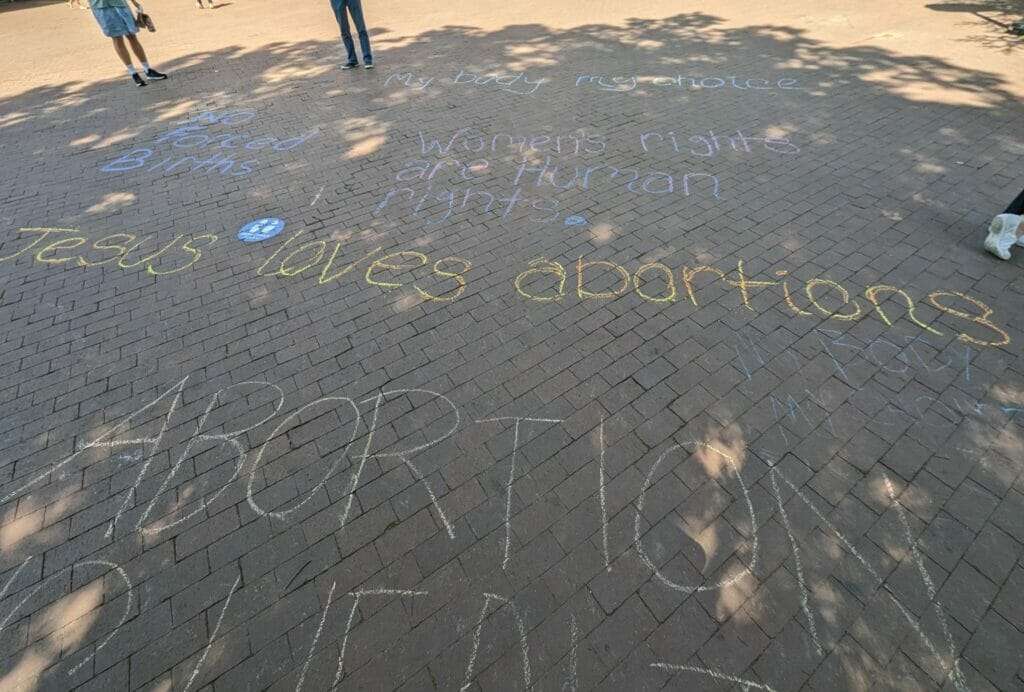 My body my choice
No
Forced
Births
Women's rights
are Human
rights.
Jesus loves abortions
MY BODY
ABORTION